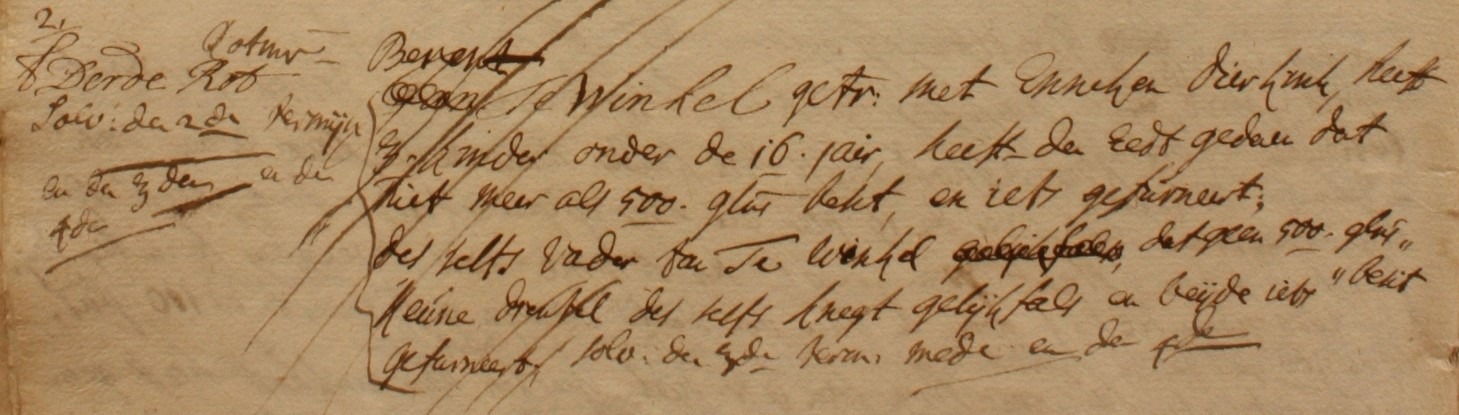 2.
Rotmr
Derde Rot
Solv: den 2de termijn
en den 3den en den
4den
Berent
Te Winkel getr: met Enneken Dierkink, heeft
3. kinder onder de 16. jair, heeft den Eedt gedaen dat
niet meer als 500. glns besit, en iets gefurneert;
des selfs Vader Jan Te Winkel dat geen 500. glns
besit
Heine Drenkel des selfs knegt gelijkfals en beijde iets
gefurneert. solv. den 3de term: mede en den 4de